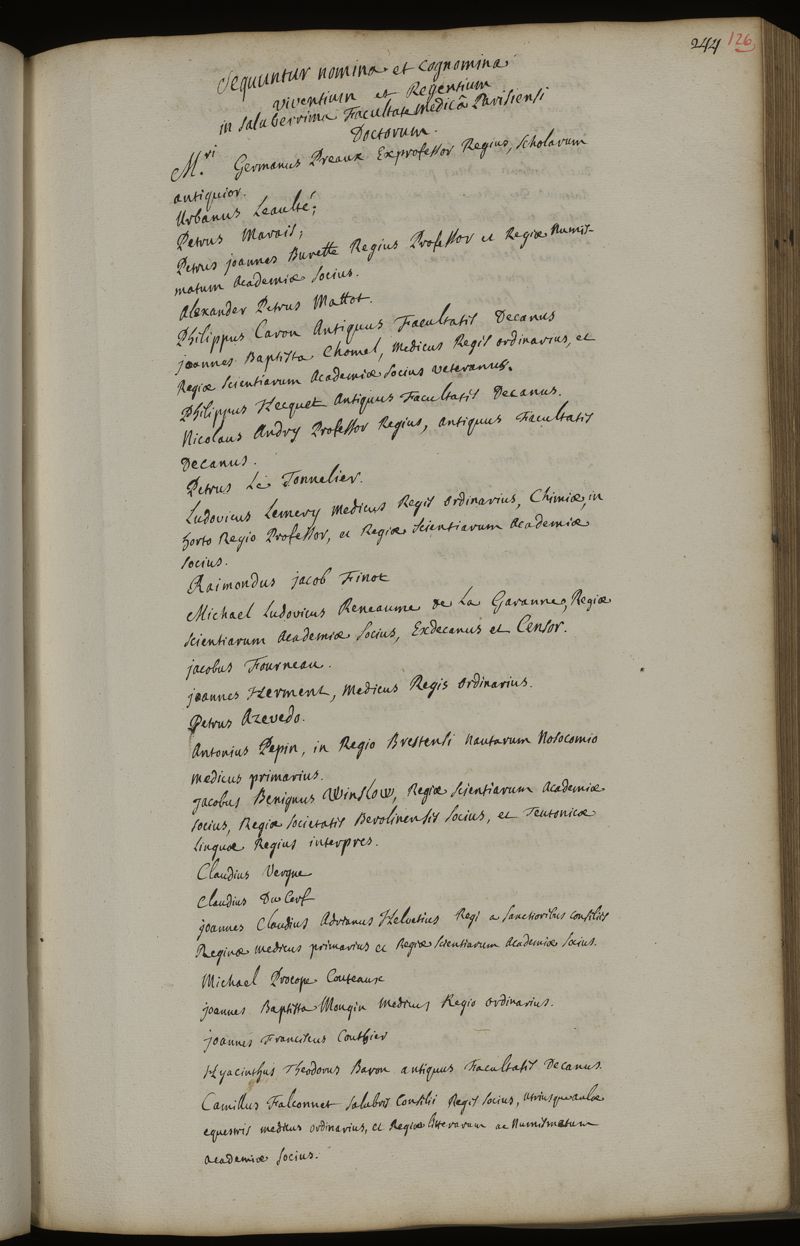 244 126
Sequuntur nomina et cognomina
viventium et Regentium
in saluberrima Facultate medicâ Parisiensi
Doctorum.
M.ri Germanus Preaux Exprofessor Regius, scholarum
antiquior.
Urbanus Leaulté;
Petrus Marais;
Petrus joannes Burette Regius Professor et Regiæ Numis-
matum Academiæ socius.
Alexander Petrus Mattot.
Philippus Caron Antiquus Facultatis Decanus
joannes Baptista Chomel, Medicus Regis ordinarius, et
Regiæ scientiarum Academiæ socius veteranus.
Philippus Hecquet Antiquus Facultatis Decanus.
Nicolaus Andry Professor Regius, antiquus Facultatis
Decanus.
Petrus Le Tonnelier.
Ludovicus Lemery medicus Regis ordinarius, Chimiæ, in
horto Regio Professor, et Regiæ scientiarum Academiæ
socius.
Raimondus jacob Finot
Michael Ludovicus Reneaume de La Garanne, Regiæ
scientiarum Academiæ socius, Exdecanus et Censor.
jacobus Fourneau.
joannes Herment, Medicus Regis ordinarius.
Petrus Azevedo.
Antonius Pepin, in Regio Brestensi nautarum Nosocomio
medicus primarius.
jacobus Benignus Winslow, Regiæ scientiarum Academiæ
socius, Regiæ societatis Berolinensis socius, et Teutonicæ
linguæ Regius interpres.
Claudius Vergne
Claudius Du Cerf
joannes Claudius Adrianus Helvetius Regi a sanctioribus consiliis
Reginæ medicus primarius et Regiæ scientiarum Academiæ socius.
Michael Procope Couteaux
joannes Baptista Mongin medicus Regio ordinarius.
joannes Franciscus Couthier
Hyacinthus Theodorus Baron antiquus Facultatis Decanus.
Camillus Falconnet salubris Consilii Regis socius, utriusque aulæ
equestris medicus ordinarius, et Regiæ literarum ac Numismatum
academiæ socius.